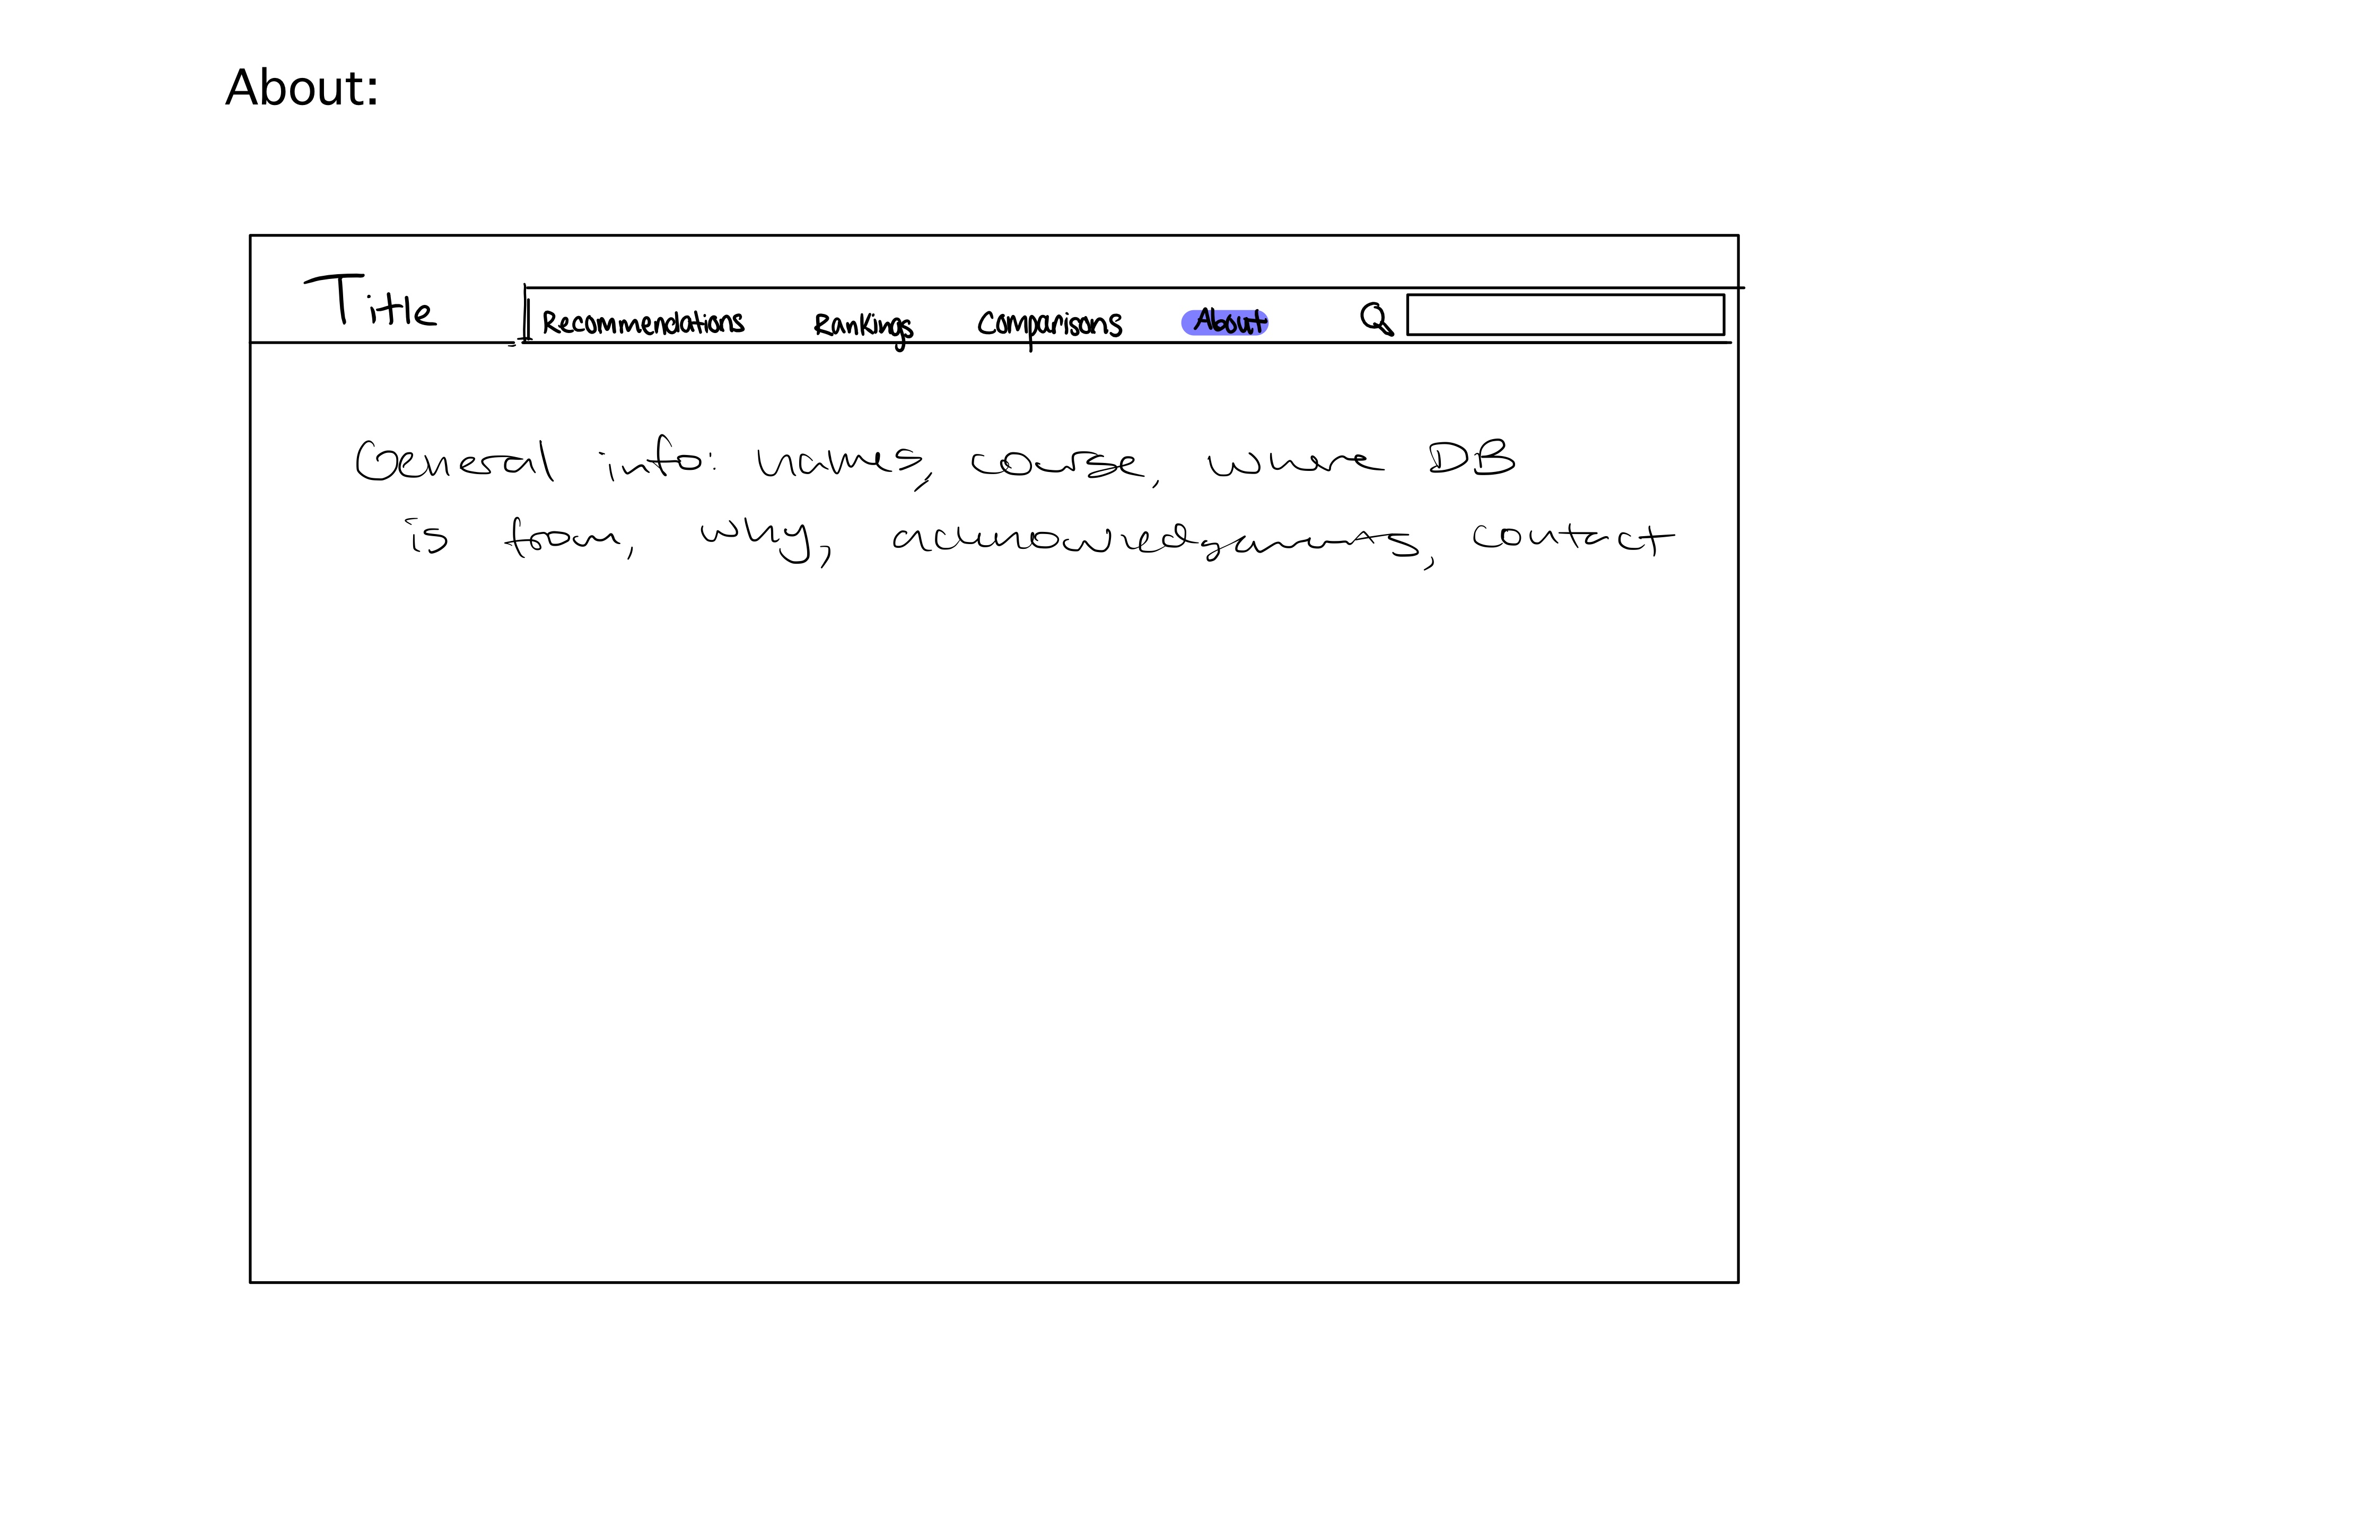 About:
Title
Recommendations Rankings Comparisons About
General info: names, course, where DB
is from, why, acknowledgements, contact